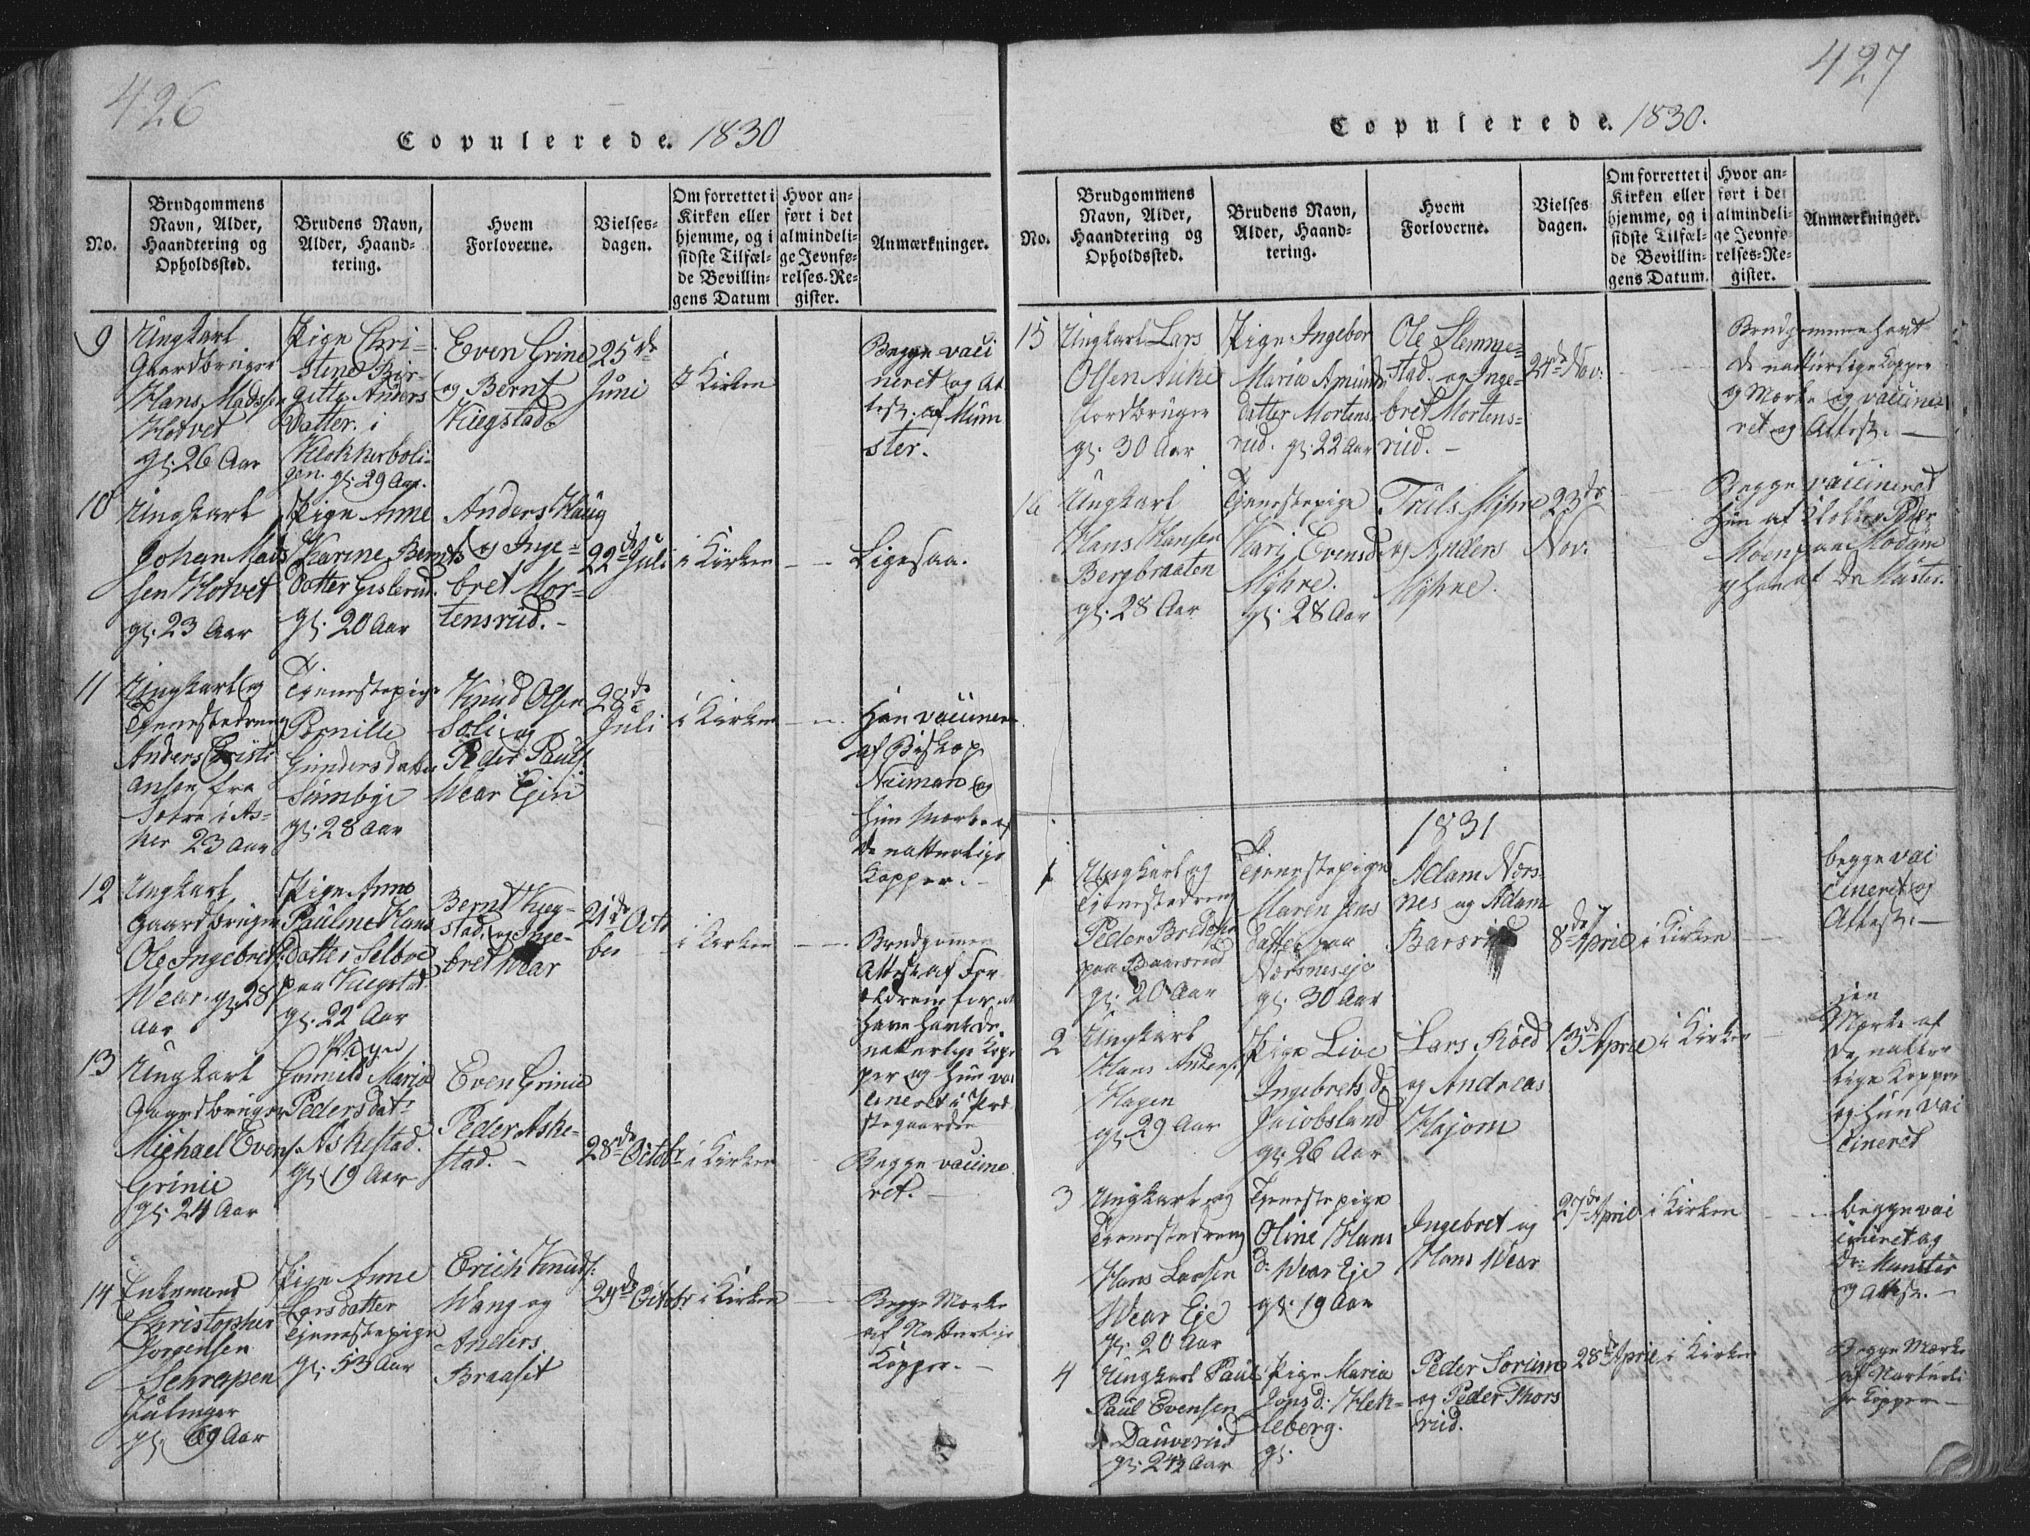 426
Copulerede. 1830
No.
Brudgommens
Navn, Alder,
Haandtering og
Opholdssted.
Brudens Navn,
Alder, Haand-
tering.
Hvem
Forloverne.
Vielses-
dagen.
Om forrettet i
Kirken eller
hjemme, og i
sidste Tilfæl-
de Bevillin-
gens Datum
Hvor an-
ført i det
almindeli-
ge Jevnfø-
relses-Re-
gister.
Anmærkninger.
9
Ungkarl
Gaardbruger
Hans Madssen
Hotvet
gl. 26 Aar
Pige Chri-
stine Bir-
gitte Anders
datter i
Klokkerboli-
gen. gl. 29 Aar.
Even Grine
og Bernt
Kiegstad
25de
Juni
I Kirken
Begge vacci
neret og At
test. af Mün
ster.
10
Ungkarl
Johan Mads
sen Hotvet
gl. 23 Aar
Pige Anne
Karine Bernts
datter Gislerud.
gl. 20 Aar
Anders Haug
og Inge-
bret Mor-
tensrud.
22de Juli
i Kirken
Ligesaa.
11
Ungkarl og
Tjenestedreng
Anders Christi
ansen fra
i As-
ker 23 Aar
Tjenestepige
Pernille
Gundersdatter
gl. 28 Aar
Knud Olsen
Soli og
Peder Pauls.
Wear Ejeri
28de
Juli
i Kirken
Han vaccineret
af Biskop
Neiman og
Hun Mærke af
de natturlige
Kopper.
12
Ungkarl
Gaardbruger
Ole Ingebrets.
Wear. gl. 28
Aar
Pige Anne
Pauline Hans
datter Selbre
paa Kiegstad.
gl. 22 Aar
Bernt Kieg-
stad, og Inge-
bret Wear
21de Octo
ber
i Kirken
Brudgommen
Attest af For
ældrene for at
have havt de
naturlige Kop
per og Hun va
cineret i Præ
stegaarden
13
Ungkarl
Gaardbruger
Michael Evens.
Grinie
gl. 24 Aar
Pigen
Gunnild Maria
Pedersdatr
Askestad.
gl. 19 Aar
Even Grinie
Peder Aske-
stad.
28de Octobr
i Kirken
Begge vaccine
ret.
14
Enkemand
Christopher
Jorgensen
gl. 69 Aar
Pige Anne
Larsdatter
Tjenestepige
gl. 53 Aar
Erich Knuds.
Wang og
Anders
Braaset
29de Octobr
i Kirken
Begge Mærke
af Natturlige
Kopper.
427
Copulerede. 1830.
No.
Brudgommens
Navn, Alder,
Haandtering og
Opholdssted.
Brudens Navn,
Alder, Haand-
tering.
Hvem
Forloverne.
Vielses
dagen.
Om forrettet i
Kirken eller
hjemme, og i
sidste Tilfæl-
de Bevillin-
gens Datum.
Hvor an-
ført i det
almindeli-
ge Jevnfø-
relses-Re-
gister.
Anmærkninger.
15
Ungkarl Lars
Olsen
Jordbruger
gl. 30 Aar
Pige Ingebor
Maria Amunds
datter Mortens
rud. gl. 22 Aar
Ole Slemme-
stad. og Inge-
bret Mortens-
rud.
21de Nov.
Brudgommen havt
de natturlige Kopper
og Mærke og vaccine-
ret og Attest.
16
Ungkarl
Hans Hansen
Bergbraaten
gl. 28 Aar
Tjenestepige
Kari Evensd
Myhre.
gl. 28 Aar
Truls Myhre
og Anders
Myhre.
23de
Nov.
Begge vaccineret
Hun af Klokker Peder
Moen paa Modum
og Han af Dr Münster.
1831
1
Ungkarl og
Tjenestedreng
Peder
paa Baarsrud
gl. 20 Aar
Tjenestepige
Maren Jens
datter paa
Nærsnes eje
gl. 30 Aar
Adam Nærs-
nes og Adam
Barsrud
8de April
i Kirken
begge vac
cineret og
Attest.
2
Ungkarl
Hans Anders.
Hagen
gl. 29 Aar
Pige Live
Ingebretsd
Jacobsland
gl. 26 Aar
Lars Röed
og Andreas
Hajom
13de April
i Kirken
Mærke af
de nattur
lige Kopper
og Hun vac
cineret
3
Ungkarl og
Tjenestedreng
Hans Larsen
Wear Eje
gl. 20 Aar
Tjenestepige
Oline Hans
d. Wear Eje
gl. 19 Aar
Ingebret og
Hans Wear
27de April
i Kirken
begge vac
cineret og
Dr. Münster
og Attest.
4
Ungkarl Paul
Paul Evensen
Dauverud
gl. 24½ Aar
Pige Maria
Jonsd. Hek-
leberg.
gl.
Peder Sorum
og Peder Thors
rud.
28de April
i Kirken
Begge Mærke
af Naturli
ge Kopper